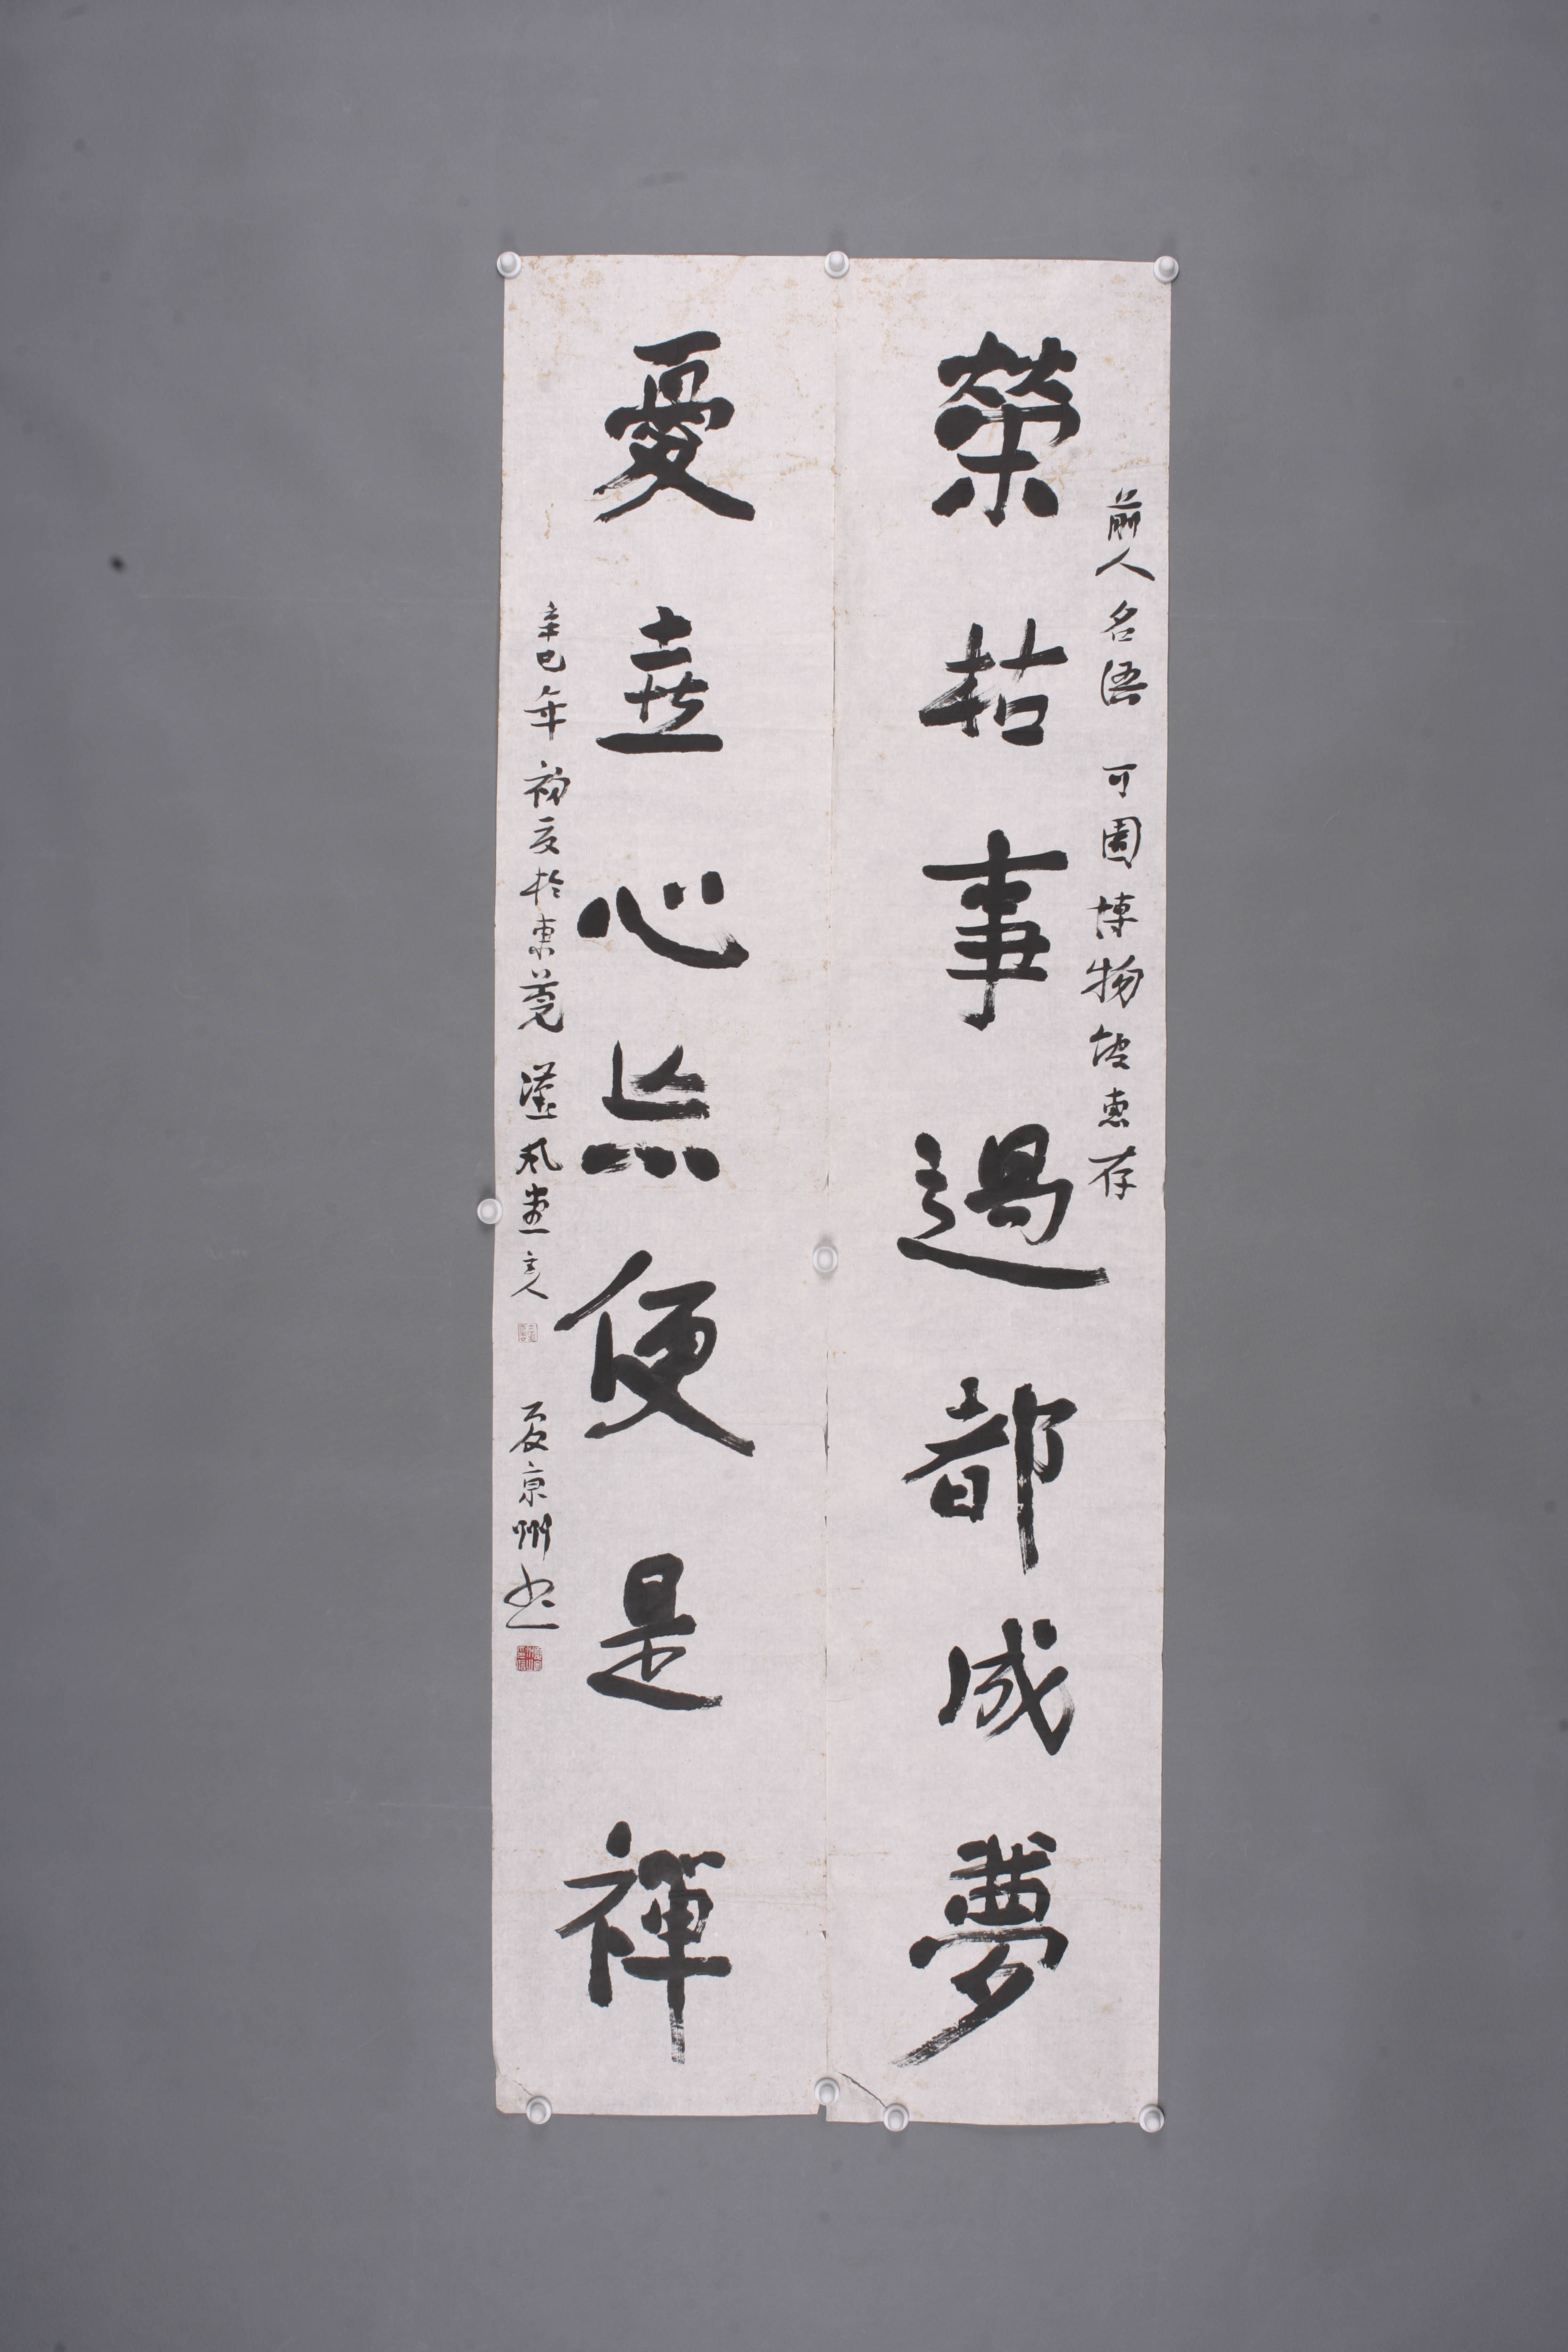 前人名语 可園博物館惠存
榮枯事過都成夢
憂喜心忘便是禪
辛巳年初夏於東莞漢風堂主人 夏京州書